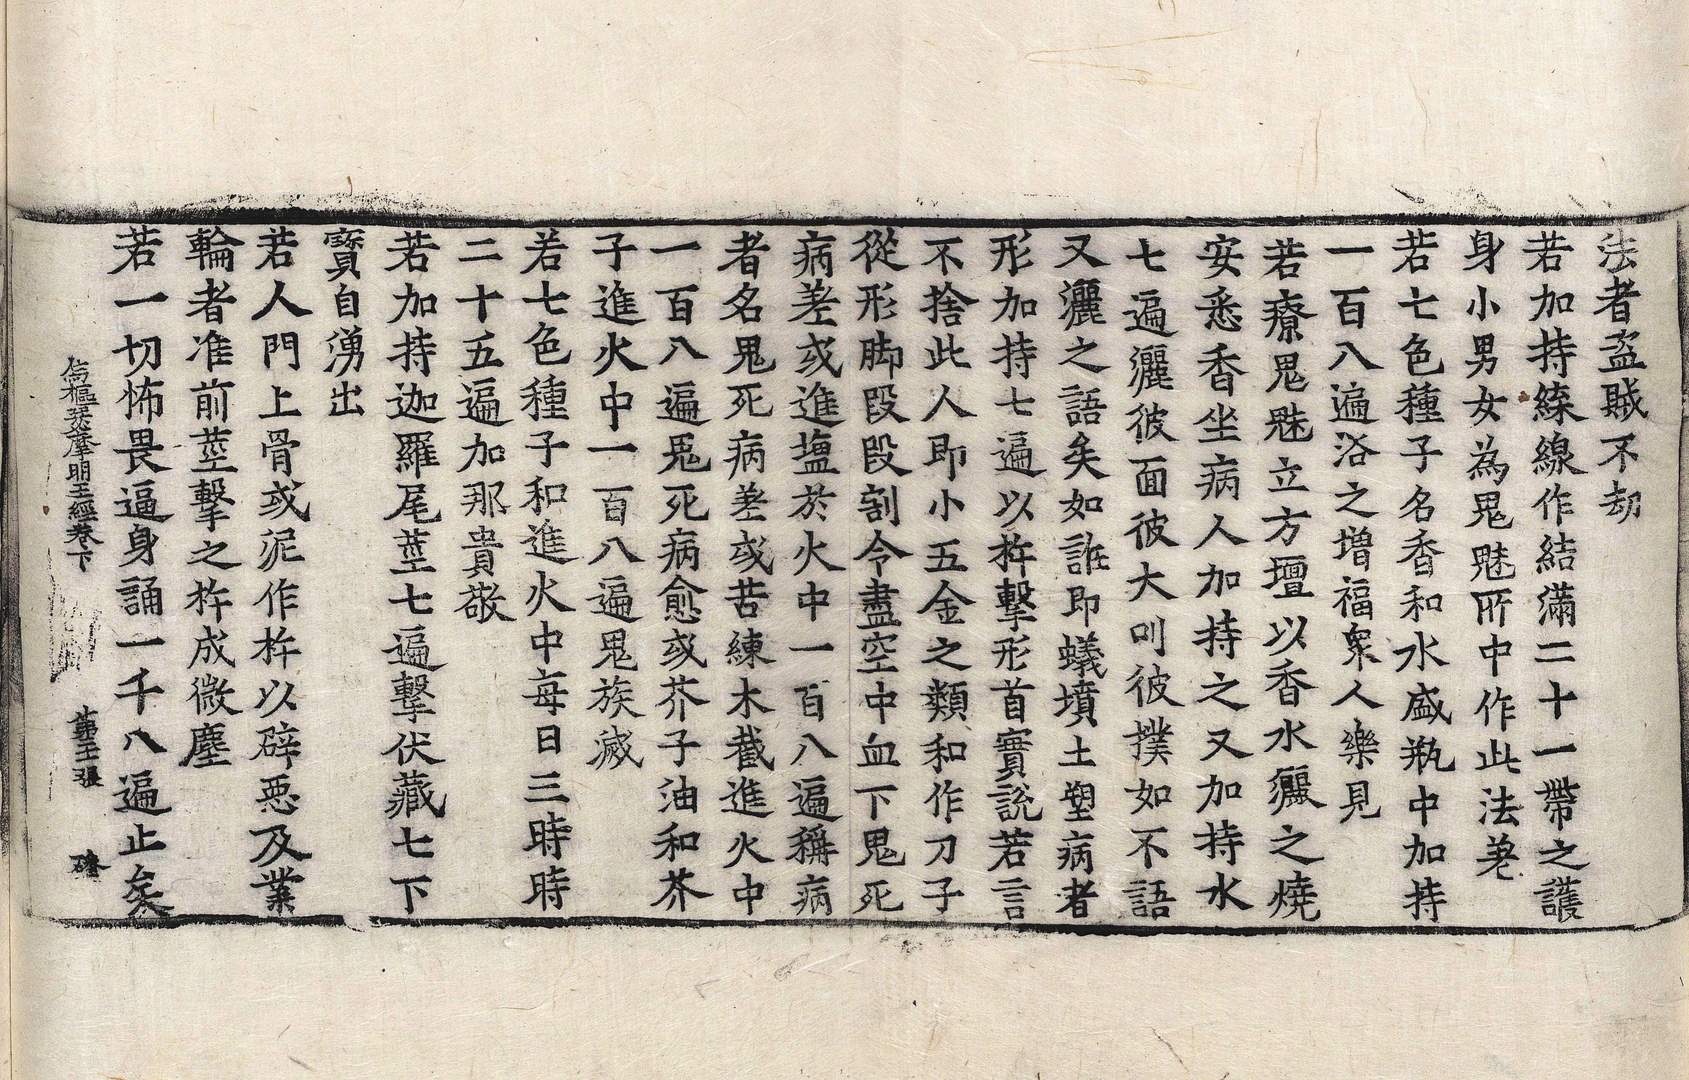 法者盜賊不劫
若加持綵線作結滿二十一帶之護
身小男女為鬼魅所中作此法差
若七色種子名香和水盛瓶中加持
一百八遍浴之增福衆人樂見
若療鬼魅立方壇以香水灑之燒
安悉香坐病人加持之又加持水
七遍灑彼面彼大叫彼撲如不語
又灑之語矣如誰即蟻墳土塑病者
形加持七遍以杵擊形首實說若言
不捨此人即小五金之類和作刀子
從形脚段段割令盡空中血下鬼死
病差或進塩於火中一百八遍稱病
者名鬼死病差或苦練木截進火中
一百八遍鬼死病愈或芥子油和芥
子進火中一百八遍鬼族滅
若七色種子和進火中每日三時時
二十五遍加那貴敬
若加持迦羅尾莖七遍擊伏藏七下
寶自湧出
若人門上骨或泥作杵以辟惡及業
輪者准前莖擊之杵成微塵
若一切怖畏逼身誦一千八遍止矣
樞瑟摩明王經卷下 第五張